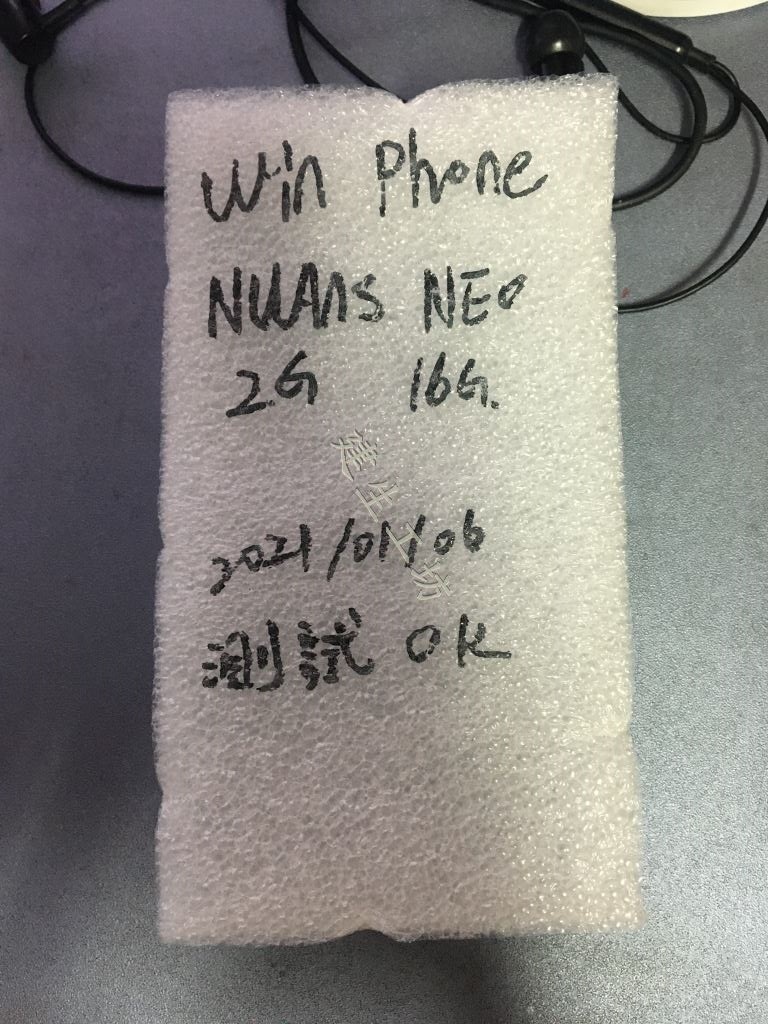 Win Phone
NUAnS NEo
2G 16G.
建生工坊
2021/01/06
測試 OK